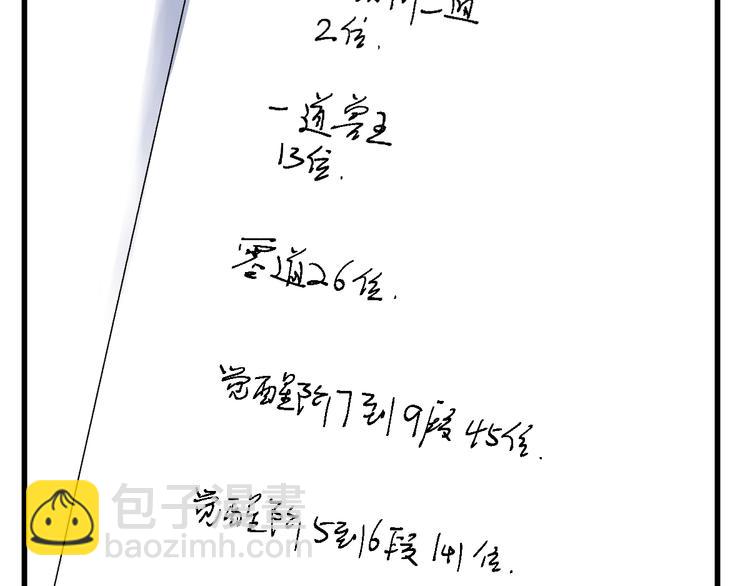 二道
2位.
一道兽王
13位.
零道26位.
觉醒阶17到19段45位.
觉醒阶15到16段141位.
包子漫畫
baozimh.com